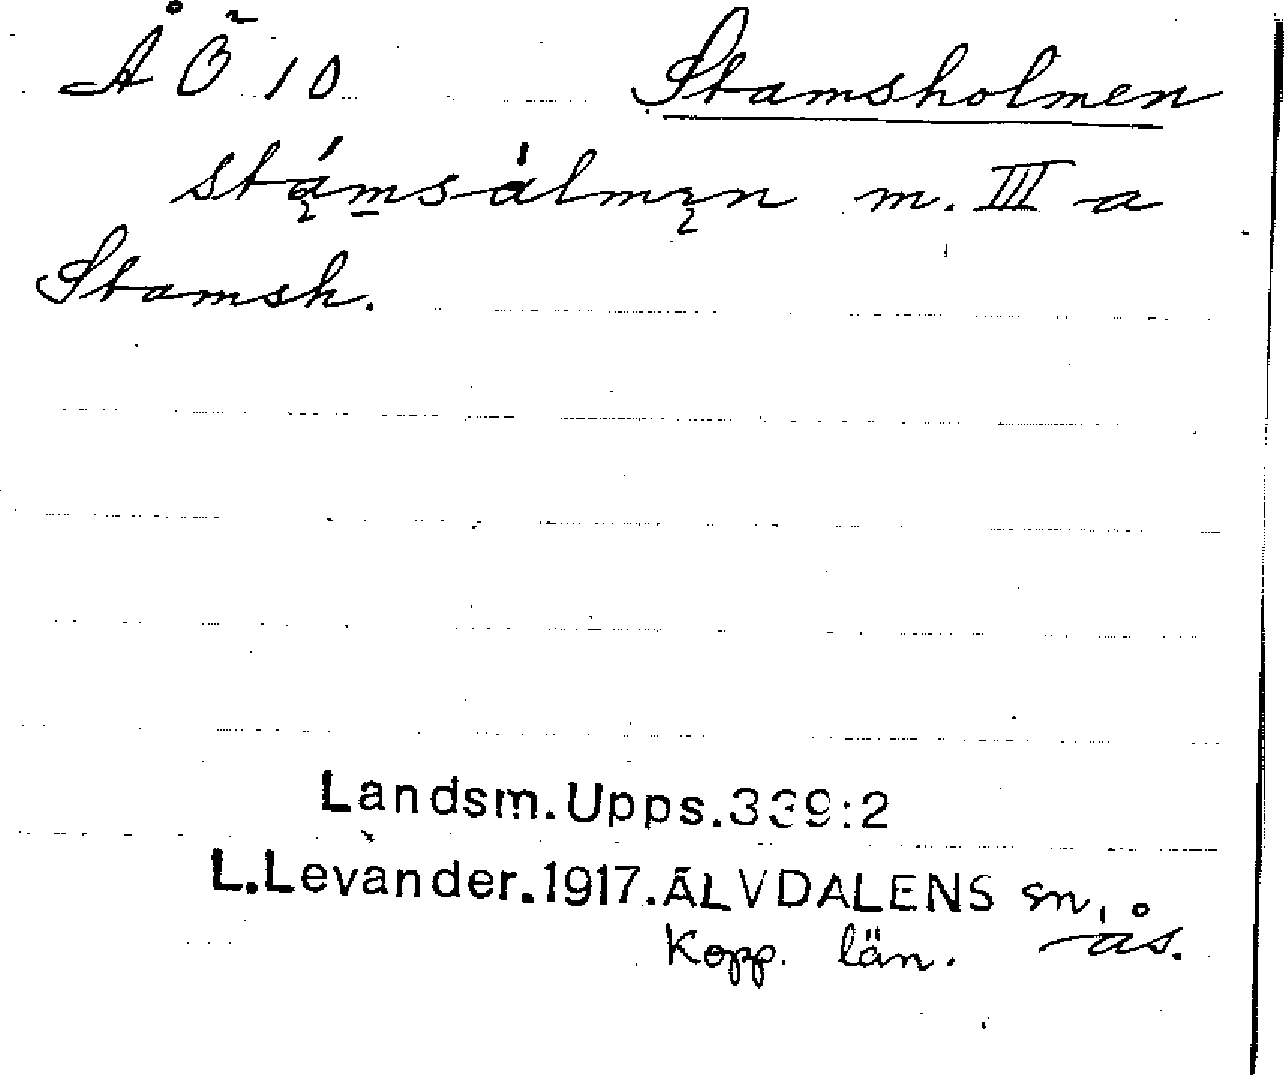 ÅÖ 10 Stamsholmen
stą́m̲sålmęn m. III a
Stamsh.
Landsm.Upps.339:2
L.Levander.1917.ÄLVDALENS sn, ås.
Kopp. län.